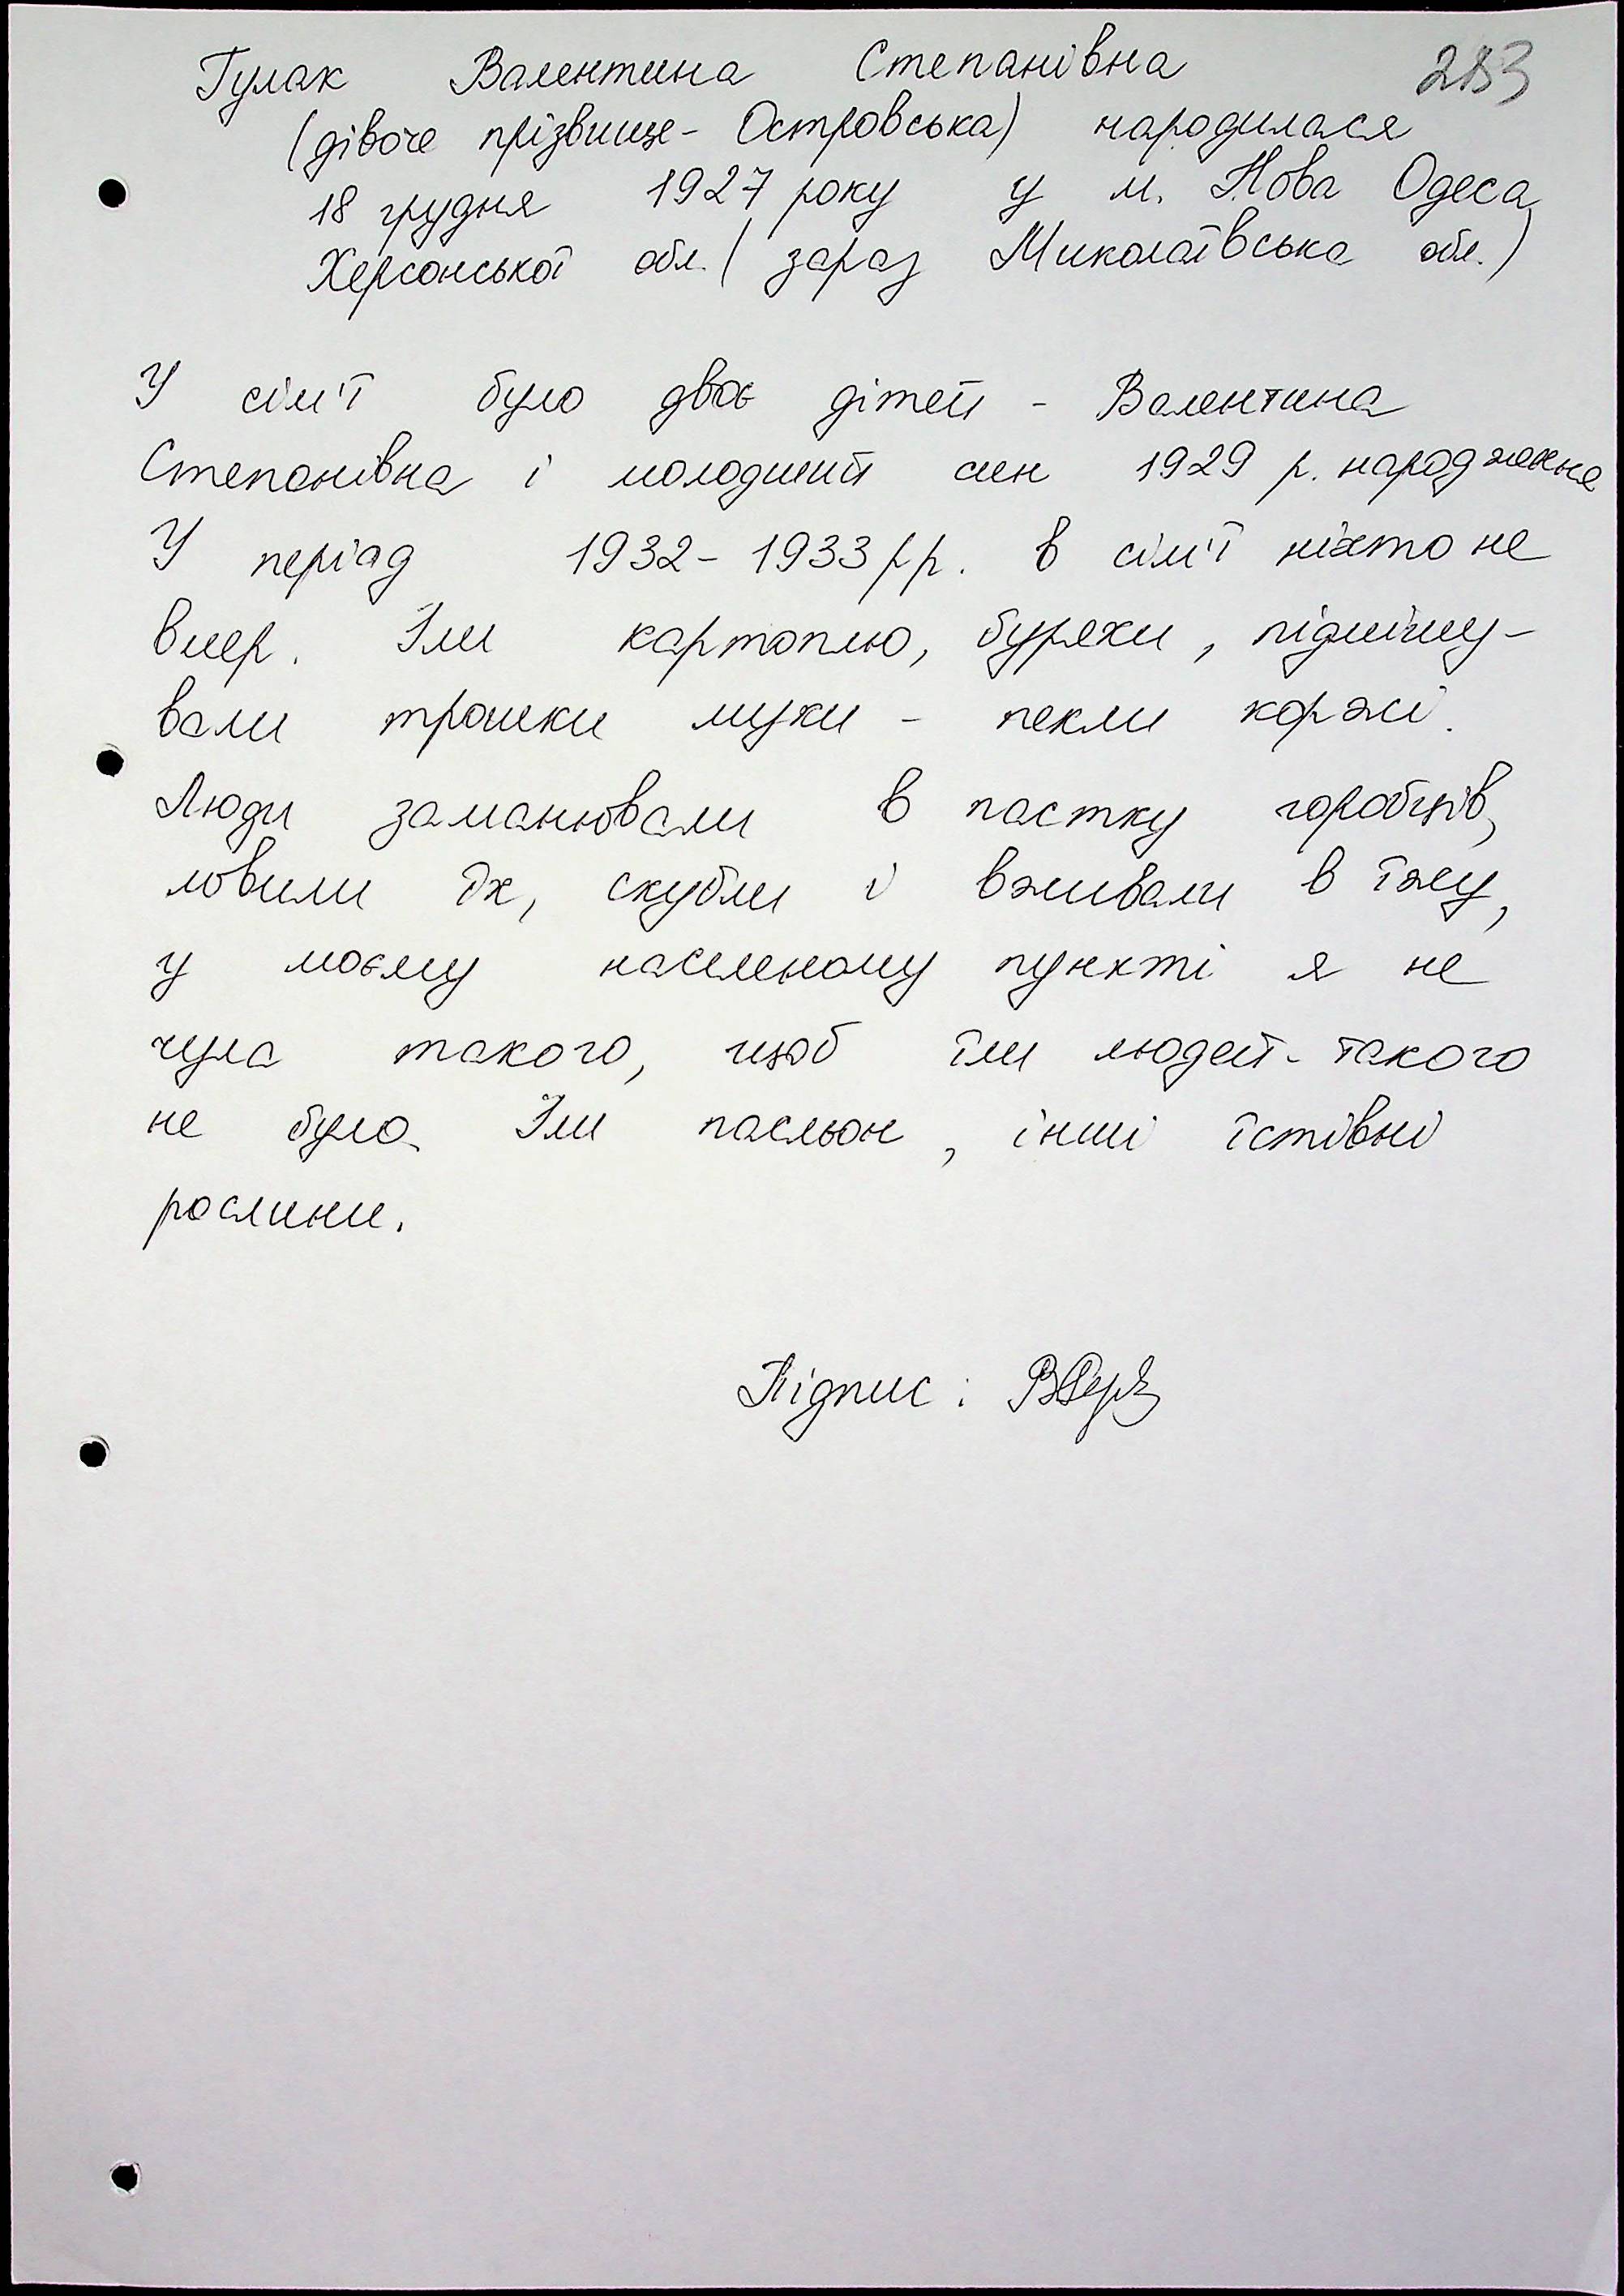 Гулак Валентина Степанівна 283
(дівоче прізвище - Островська) народилася
18 грудня 1927 року у м. Нова Одеса
Херсонської обл. (зараз Миколаївська обл.)
У сім'ї було двоє дітей - Валентина
Степанівна і молодший син 1929 р. народження
У період 1932 - 1933 рр. в сім'ї ніхто не
вмер. Їли картоплю, буряки, підмішу-
вали трошки муки - пекли коржі.
Люди заманювали в пастку горобців,
ловили їх, скубли і вживали в їжу,
у моєму населеному пункті я не
чула такого, щоб їли людей - такого
не було. Їли пасльон, інші їстівні
рослини.
Підпис: